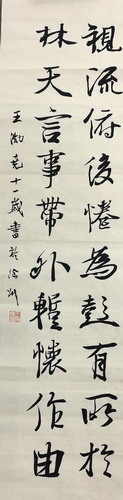 親流俯後惓為彭有所於
林天言事帶外蹔懷作由
王渤堯十一歲書於徐州